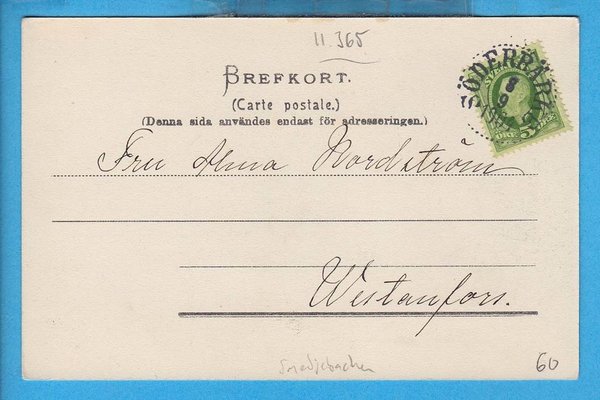 11.365
BREFKORT.
(Carte postale.)
(Denna sida användes endast för adresseringen.)
SÖDERBÄRKE
8
9
5 ÖRE
Fru Alma Nordström
Westanfors.
Smedjebacken
60